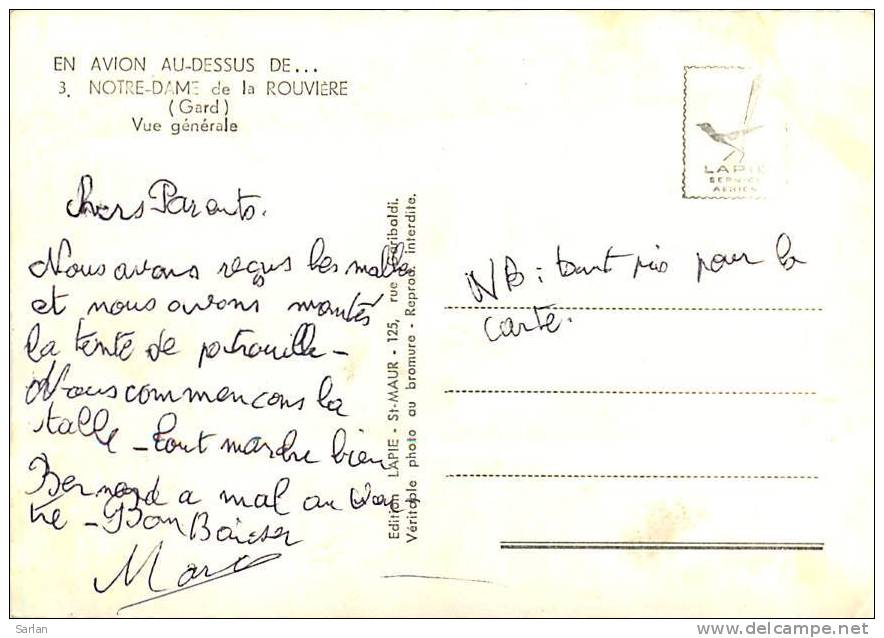 EN AVION AU-DESSUS DE...
3. NOTRE-DAME de la ROUVIÈRE
(Gard)
Vue générale
LAPIE
SERVICE
AERIEN
Chers Parents.
Nous avons reçus les malles
et nous avons montés
la tente de patrouille -
Nous commencons la
table - tout marche bien
Bernard a mal au ven
tre - Bon Baiser
Marc
Edition LAPIE - St-MAUR - 125, rue Garibaldi.
Véritable photo au bromure - Reprod. interdite.
NB : tant pis pour la
carte.
Sarlan
delcampe.net